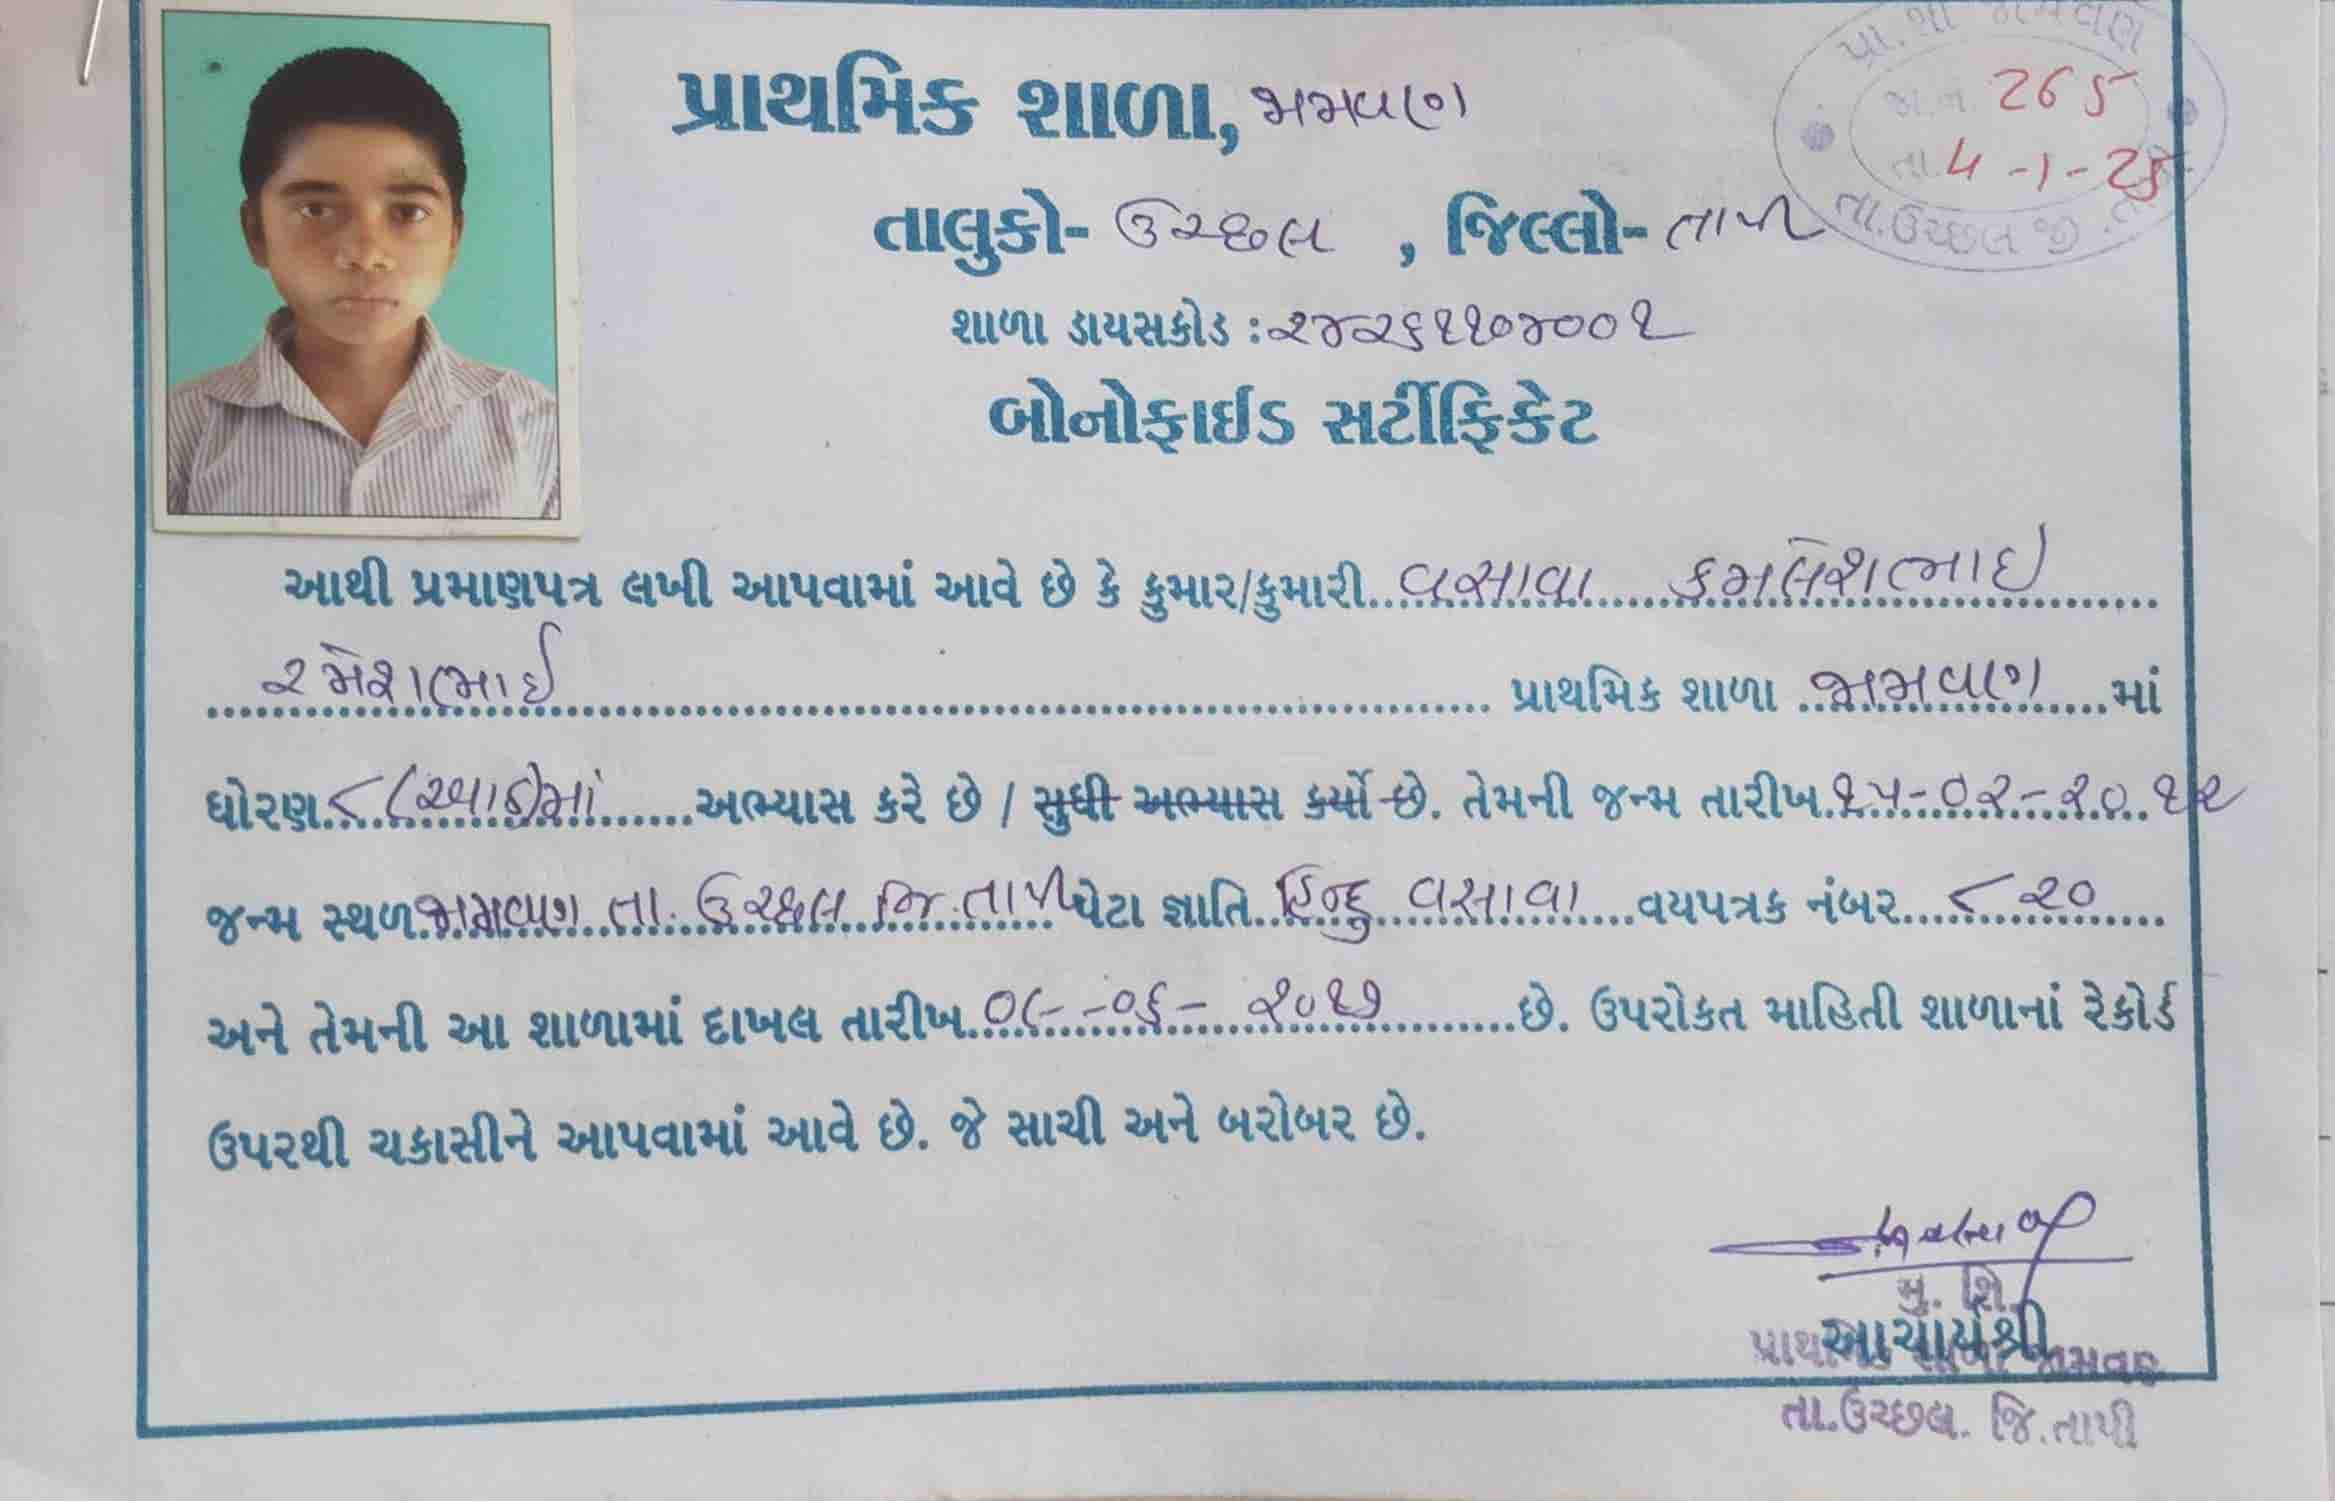 પ્રા. શા જામવણ
જા.ન. 265
તા. 4-1-25
તા.ઉચ્છલ જી.
પ્રાથમિક શાળા, જામવણ
તાલુકો- ઉચ્છલ , જિલ્લો- તાપી
શાળા ડાયસકોડ : ૨૪૨૬૧૧૦૪૦૦૧
બોનોફાઈડ સર્ટીફિકેટ
આથી પ્રમાણપત્ર લખી આપવામાં આવે છે કે કુમાર/કુમારી વસાવા કમલેશભાઇ
રમેશભાઈ પ્રાથમિક શાળા જામવણ માં
ધોરણ ૮ (આઠ)માં અભ્યાસ કરે છે / સુધી અભ્યાસ કર્યો છે. તેમની જન્મ તારીખ ૧૫-૦૨-૨૦૧૨
જન્મ સ્થળ જામવણ તા. ઉચ્છલ જિ. તાપી પેટા જ્ઞાતિ હિન્દુ વસાવા વયપત્રક નંબર ૮૨૦
અને તેમની આ શાળામાં દાખલ તારીખ ૦૮-૦૬-૨૦૧૭ છે. ઉપરોકત માહિતી શાળાનાં રેકોર્ડ
ઉપરથી ચકાસીને આપવામાં આવે છે. જે સાચી અને બરોબર છે.
મુ. શિ.
આચાર્યશ્રી
પ્રાથમિક શાળા જામવણ
તા.ઉચ્છલ. જિ.તાપી